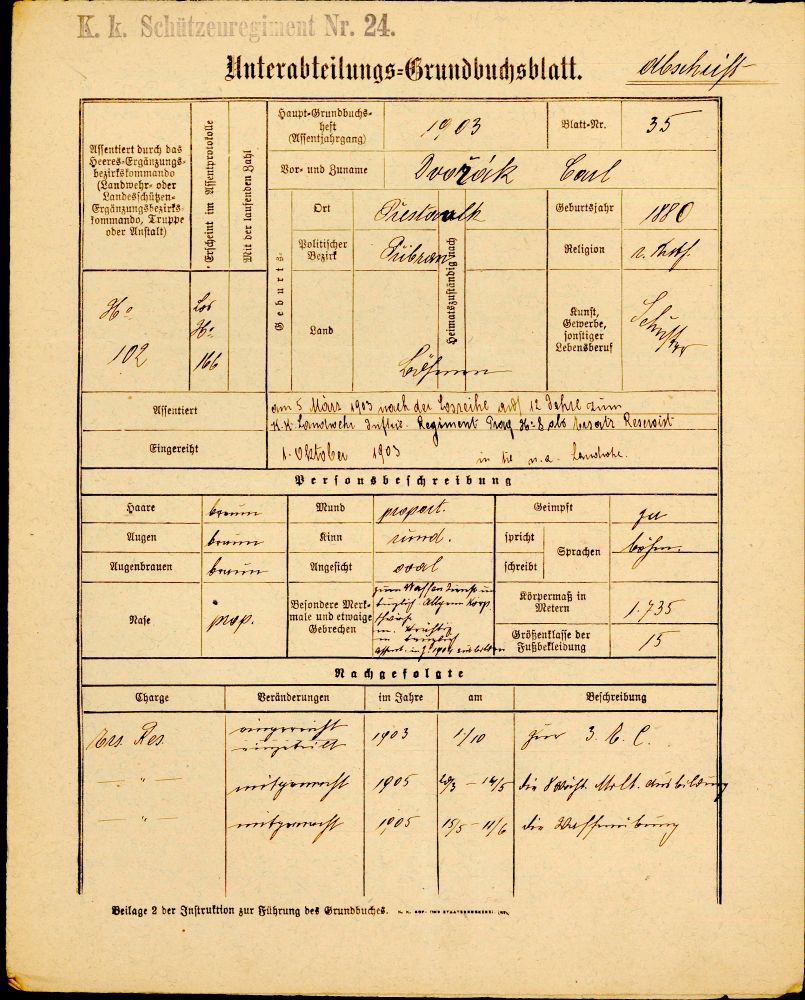 K. k. Schützenregiment Nr. 24.
Unterabteilungs-Grundbuchsblatt.
Abschrift
Assentiert durch das
Heeres-Ergänzungs-
bezirkskommando
(Landwehr- oder
Landesschützen-
Ergänzungsbezirks-
kommando, Truppe
oder Anstalt)
Erscheint im Assentprotokolle
Mit der laufenden Zahl
Haupt-Grundbuchs-
heft
(Assentjahrgang)
1903
Blatt-Nr.
35
Vor- und Zuname
Dvořák Carl
Geburts-
Ort
Geburtsjahr
1880
Politischer
Bezirk
Pribram
Heimatszuständig nach
Religion
r. kath.
Land
Böhmen
Kunst,
Gewerbe,
sonstiger
Lebensberuf
Schuster
102
Los
166
Assentiert
am 5 März 1903 nach der Losreihe auf 12 Jahre zum
K.K. Landwehr Regiment Prag 8 als Ersatz Reservist
Eingereiht
1. Oktober 1903 in die n.a. Landwehr.
Personsbeschreibung
Haare
braun
Mund
proport.
Geimpft
ja
Augen
braun
Kinn
rund.
spricht
schreibt
Sprachen
böhm.
Augenbrauen
braun
Angesicht
oval
Nase
prop.
Besondere Merk-
male und etwaige
Gebrechen
Körpermaß in
Metern
1.735
Größenklasse der
Fußbekleidung
15
Nachgefolgte
Charge
Veränderungen
im Jahre
am
Beschreibung
Ers. Res. eingereiht
eingeteilt 1903 1/10 zur 3.
— " — mitgemacht 1905 – 14/5 die 8 wöch. Milt. Ausbildung
— " — mitgemacht 1905 15/5 – 11/6 die Waffenübung
Beilage 2 der Instruktion zur Führung des Grundbuches.